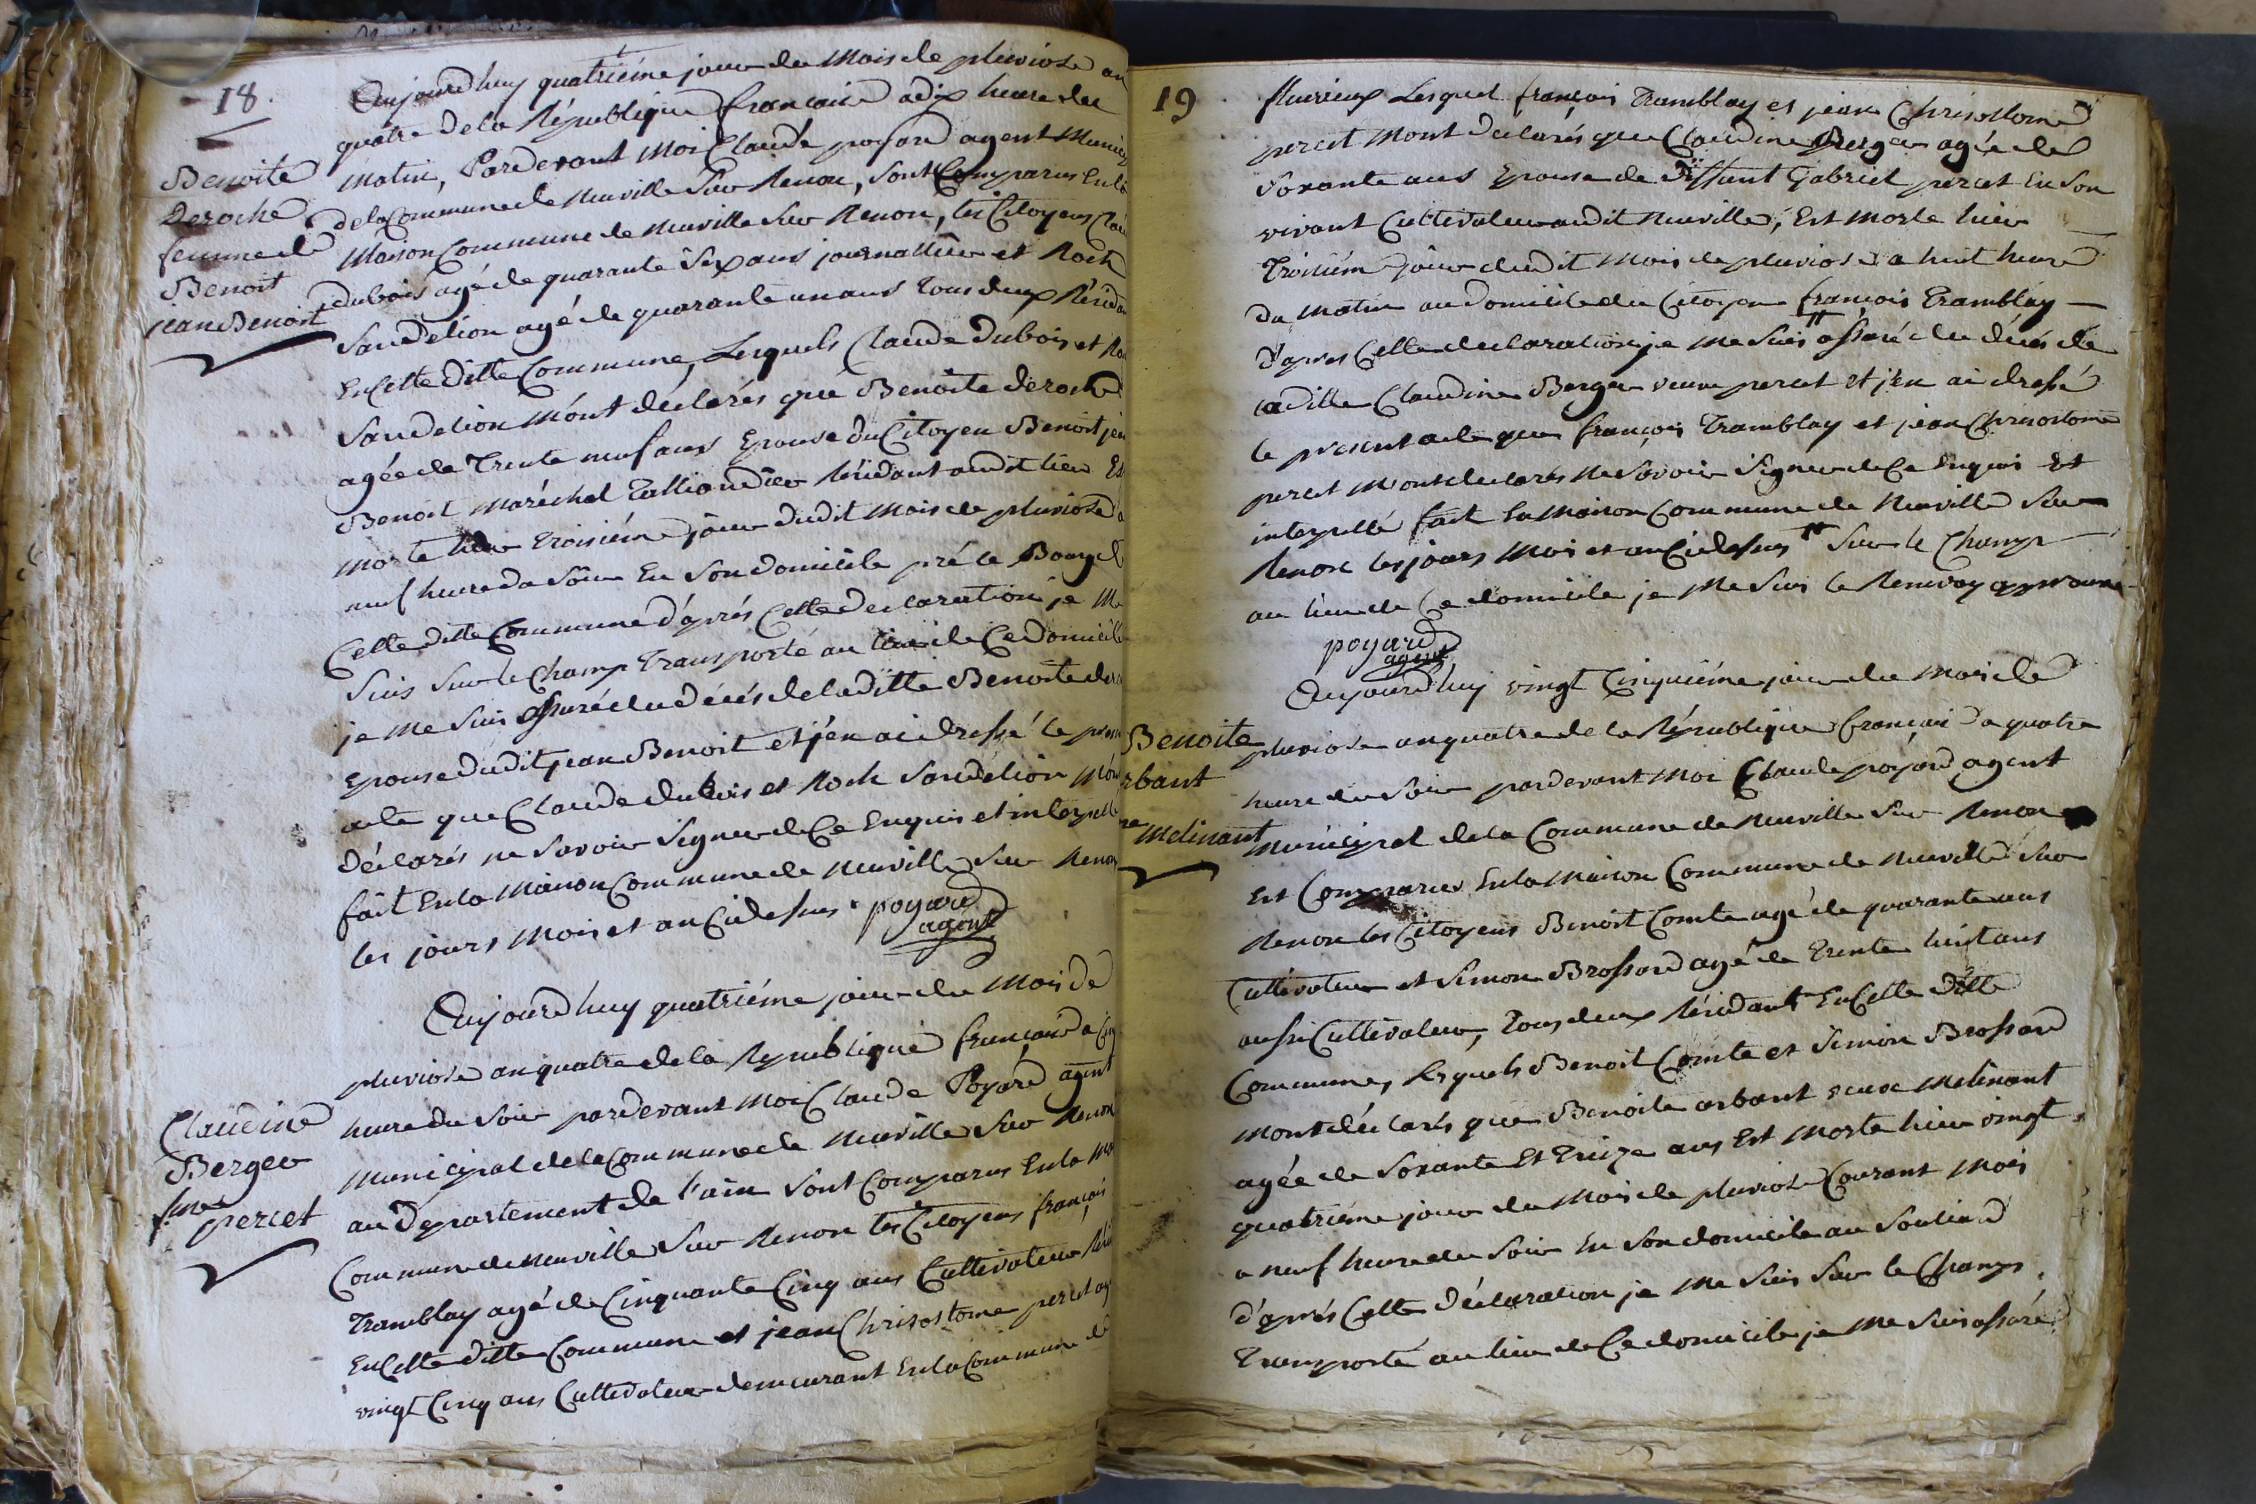 18
Benoite
Deroche
femme de
Benoit
jean Benoit
Aujourdhuy quatriéme jour du Mois de pluviose an
quatre de la République francaise a dix heure du
matin, Pardevant Moi Claude poyard agent Munici
de la Commune de Neuville Sur Renon, Sont Comparus En la
Maison Commune de Neuville Sur Renon, les Citoyens Clau
dubois agé de quarante Six ans journallier et Roch
Sandelion agé de quarante un ans Tous deux Résidan
En Cette ditte Commune, Lesquels Claude dubois et Ro
Sandelion M'ont déclarés que Benoite deroche
agée de Trente neuf ans Epouse du Citoyen Benoit jea
Benoit Maréchal Taillandier Résidant audit lieu Es
Morte hier troisiéme jour dudit Mois de pluviose a
neuf heure du Soir En Son domicile pré le Bourg d
Cette ditte Commune d'aprés Cette declaration je Me
Suis Sur le Champ Transporté au lieu de Ce domicille
je Me Suis assuré du décés de la ditte Benoite dero
Epouse dudit jean Benoit et j'en ai dressé le pres
acte que Claude dubois et Roch Sandelion M'on
déclarés ne Savoir Signer de Ce Enquis et interpelle
fait En la Maison Commune de Neuville Sur Renon
les jours Mois et an Cidessus poyard
agent
Claudine
Berger
fme
percet
Aujourdhuy quatriéme jour du Mois de
pluviose an quatre de la République francaise a Cinq
heure du Soir pardevant Moi Claude Poyard agent
Municipal de la Commune de Neuville Sur Renon
au Département de l'ain Sont Comparus En la Mai
Commune de Neuville Sur Renon les Citoyens françois
Tramblay agé de Cinquante Cinq ans Cultivateur Rési
En Cette ditte Commune et jean Chrisostome percet ag
vingt Cinq ans Cultivateur demeurant En la Commune de
19
fleurieux Lesquel françois Tramblay et jean Chrisostome
percet M'ont declarés que Claudine Berger agée de
Soixante ans Epouse de deffunt Gabriel percet En Son
vivant Cultivateur audit Neuville, Est Morte hier
Troisiéme jour dudit Mois de pluviose a huit heure
du Matin au domicile du Citoyen françois Tramblay
d'apres Cette declaration je Me Suis assuré du décés de
ladille Claudine Berger veuve percet et j'en ai dressé
le present acte que françois Tramblay et jean Chrisostome
percet M'ont declarés Ne Savoir Signer de Ce Enquis Et
interpellé fait En la Maison Commune de Neuville Sur
Renon les jours Mois et an Cidessus Sur le Champ
au lieu de Ce domicile je Me Suis le Renvoy approuvé
poyard
agent
Benoite
rbant
ve
Melinant
Aujourdhuy vingt Cinquiéme jour du Mois de
pluviose an quatre de la République français a quatre
heure du Soir pardevant Moi Claude poyard agent
Municipal de la Commune de Neuville Sur Renon
Est Comparus En la Maison Commune de Neuville Sur
Renon les Citoyens Benoit Comte agé de quarante ans
Cultivateur et Simon Brossard agé de Trente huit ans
aussi Cultivateur, Tous deux Résidant En Cette ditte
Commune, Lesquels Benoit Comte et Simon Brossard
M'ont déclarés que Benoite arbant veuve Melinant
agée de Soxante Et Treize ans Est Morte hier vingt
quatriéme jour du Mois de pluviose Courant Mois
a neuf heure du Soir En Son domicile au Souliard
d'aprés Cette Déclaration je Me Suis Sur le Champs
Transporté au lieu de Ce domicile je Me Suis assuré